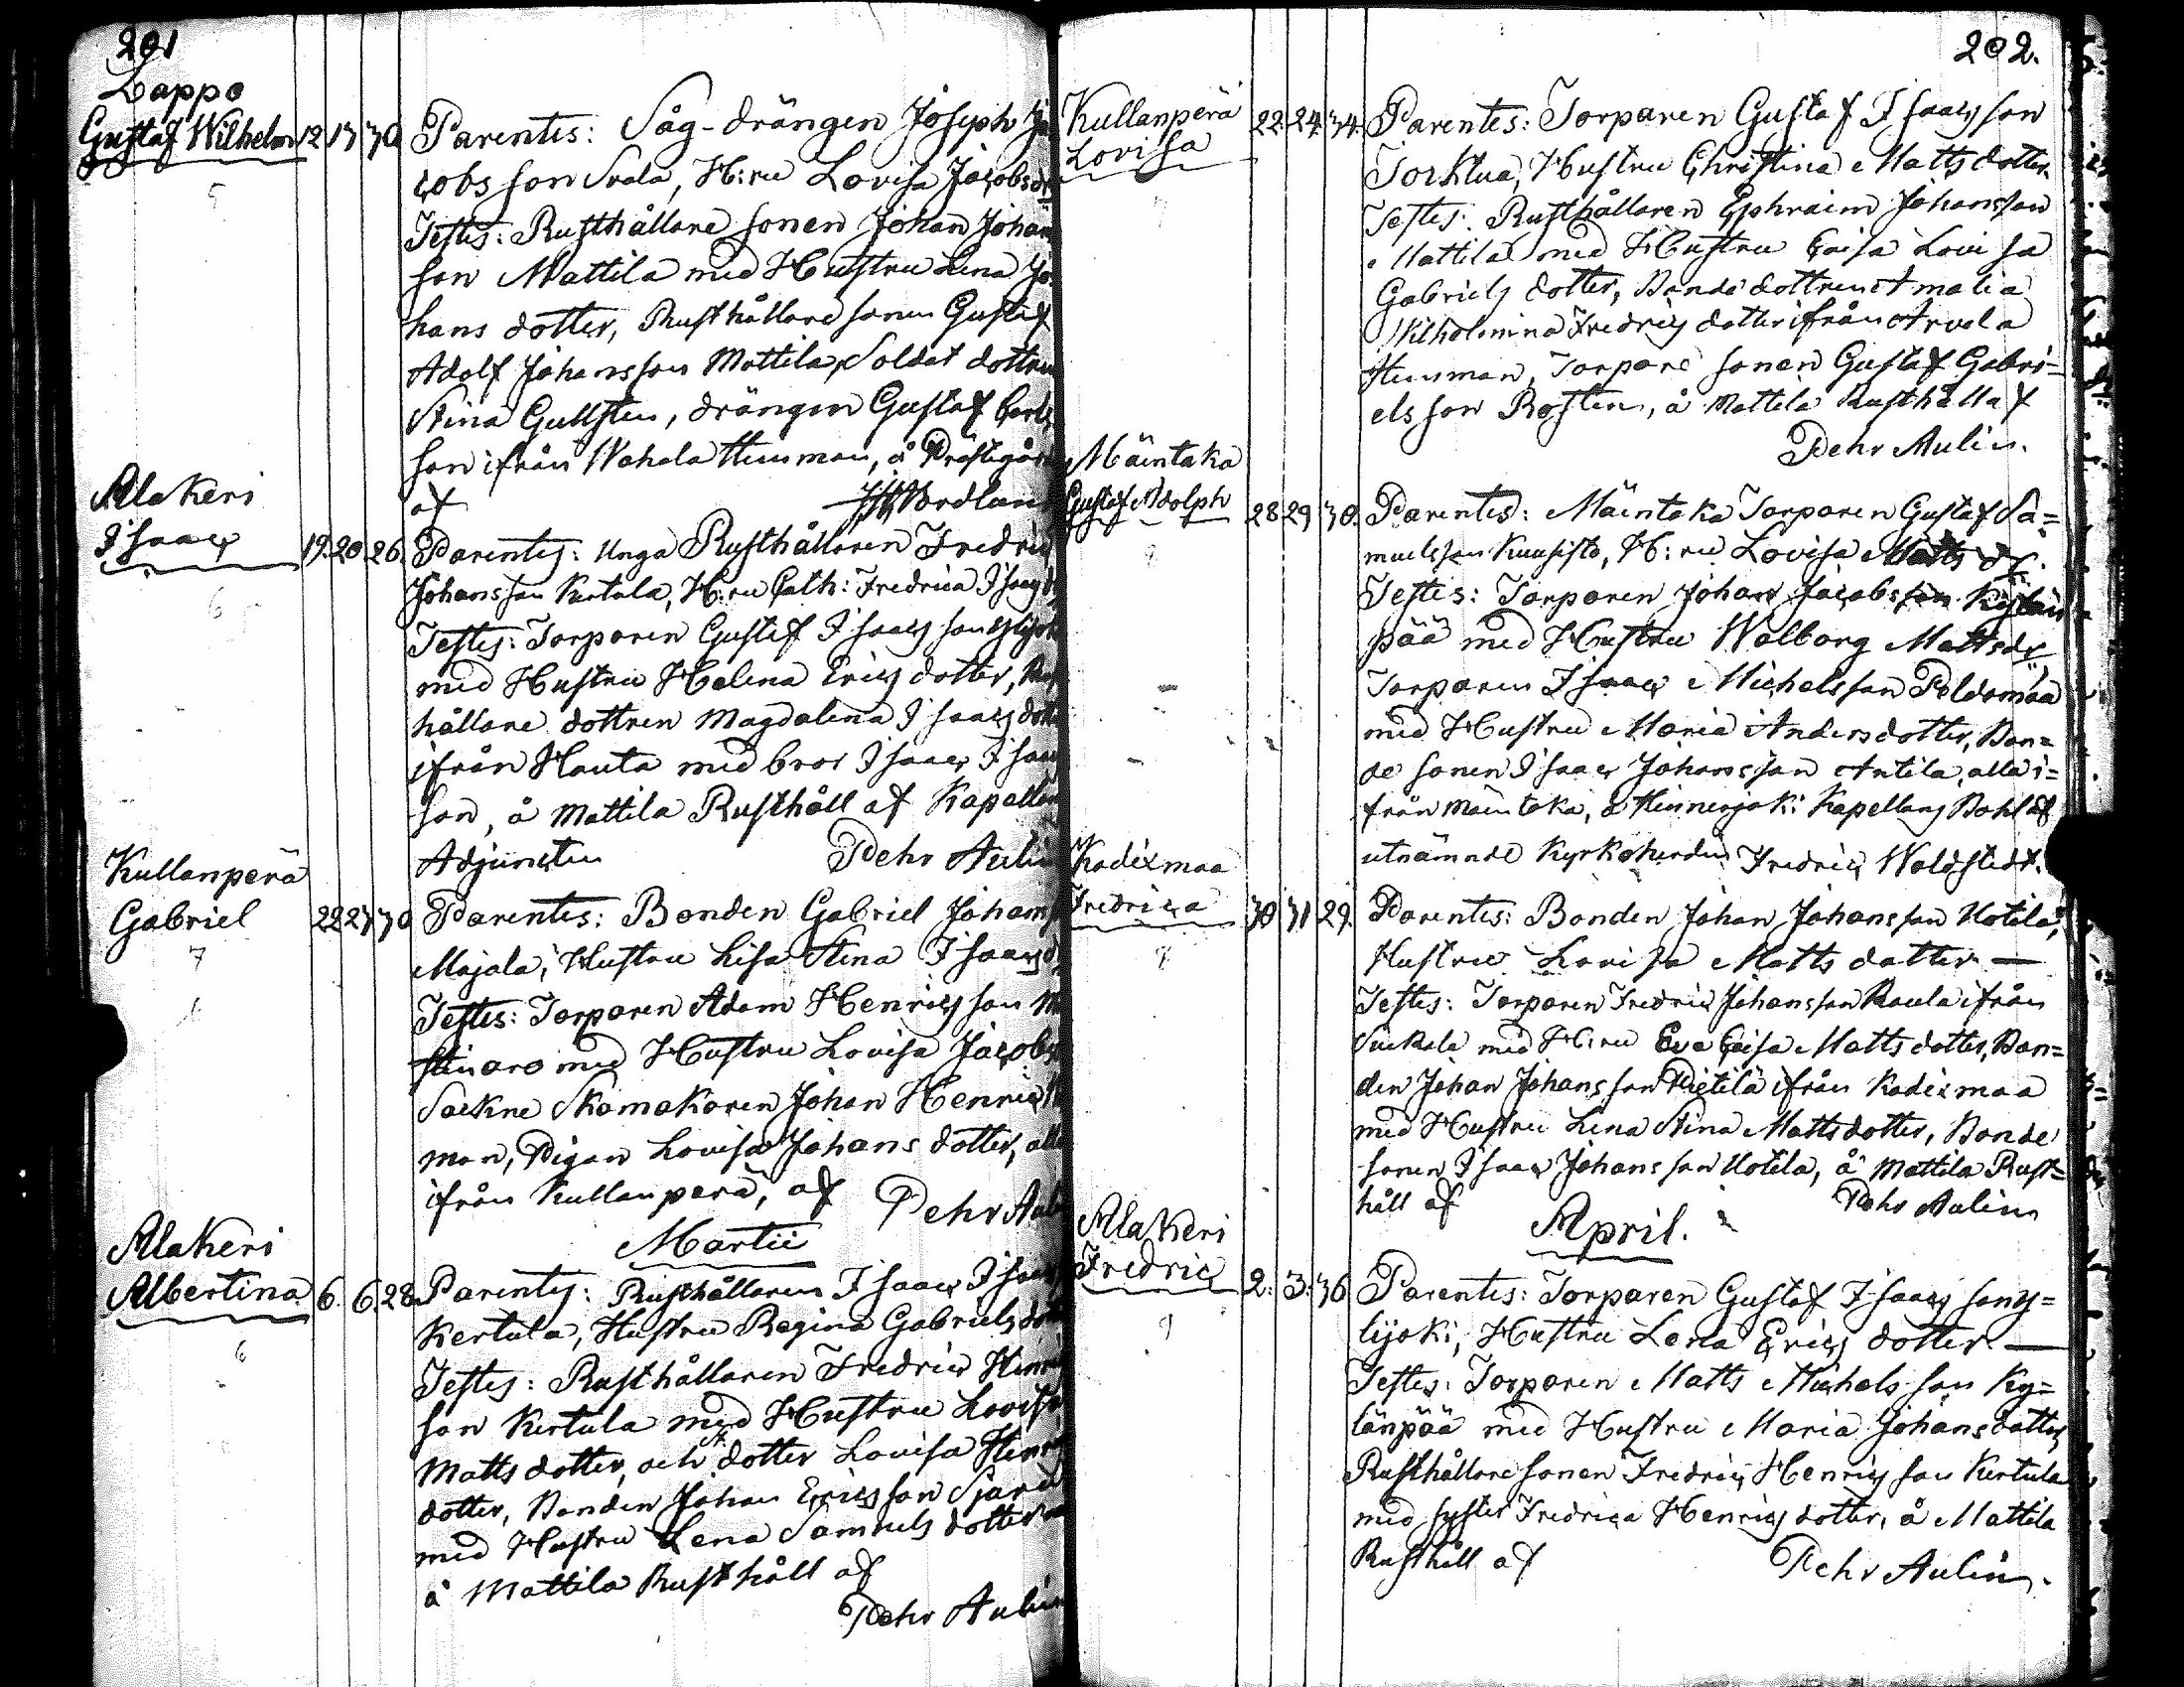 201
Lappo
Gustaf Wilhelm 12 13 30 Parentes: Såg-drängen Joseph Ja
cobs son Srala, H:ru Lovisa Jacobsdr
Testes: Rusthållare sonen Johan Johan
son Mattila med Hustru Lena Jo
hans dotter, Rusthållare sonen Gustaf
Adolf Johansson Mattila, Soldat dottren
Stina Gullsten, drängen Gustaf Carls
son ifrån Wahala Hinnman, å Prästegård
af Nordlund
Alakeri
Isaac 19. 20 26. Parentes: Unga Rusthållaren Fredric
Johansson Kertula, H:ru Cath: Fredrica Isacs d
Testes: Torparen Gustaf Isaacs son Ylijok
med Hustru Helena Erics dotter, Rust
hållare dottren Magdalena Isaacs dott
ifrån Hauta med bror Isaac Isaac
son, å Mattila Rusthåll af Kapellans
Adjuncten Pehr Aulin
Kullanperä
Gabriel 22 23 30 Parentes: Bonden Gabriel Johans
7
Majala, Hustru Lisa Stina Isaacs d
Testes: Torparen Adam Henrics son
med Hustru Lovisa Jacobs
Sockne Skomakaren Johan Henric
man, Pigan Lovisa Johans dotter, alla
ifrån Kullanperä, af Pehr Aulin
Martii
Alakeri
Albertina 6. 6. 28. Parentes: Rusthållaren Isaac Isaac
Kertula, Hustru Regina Gabriels dott
6
Testes: Rusthållaren Fredric Henric
son Kertula med Hustru Lovisa
Matts dotter, och dotter Lovisa Henrics
dotter, Bonden Johan Ericsson Sjari
med Hustru Lena Samuels dotter
å Mattila Rusthåll af
Pehr Aulin
202.
Kullanperä
Lovisa 22. 24. 34. Parentes: Torparen Gustaf Isaacs son
Torklua, Hustru Christina Matts dotter.
Testes: Rusthållaren Ephraim Johansson
Mattila med Hustru Caisa Lovisa
Gabriels dotter, Bonde dottren Amalia
Wilhelmina Fredrics dotter ifrån Arvela
Hinnman, Torpare sonen Gustaf Gabri=
els son Rosten, å Mattila Rusthåll af
Pehr Aulin.
Mäintaka
Gustaf Adolph 28 29 30. Parentes: Mäintaka Torparen Gustaf Sa=
muelsson Kuusisto, H:ru Lovisa Matts dr.
Testes: Torparen Johan Jacobsson Kylän
pää med Hustru Walborg Mattsdr
Torparen Isaac Michelsson Peldomaa
med Hustru Maria Andersdotter, Bon=
de sonen Isaac Johansson Antila, alla i=
från Mäintaka, å Hinnerjoki Kapellans Bohl af
utnämnde Kyrkoherden Fredric Woldstedt.
Kodixmaa
Fredrica 30 31 29. Parentes: Bonden Johan Johansson Uotila,
Hustru Lovisa Matts dotter —
Testes: Torparen Fredric Johansson Raula ifrån
med H:ru Eva Caisa Matts dotter, Bon=
den Johan Johansson Pietilä ifrån Kodixmaa
med Hustru Lena Stina Mattsdotter, Bonde
sonen Isaac Johansson Uotila, å Mattila Rust=
håll af Pehr Aulin
April.
Alakeri
Fredric 2. 3. 36 Parentes: Torparen Gustaf Isaacs son Y=
lijoki, Hustru Lena Erics dotter —
9
Testes: Torparen Matts Michels son Ky=
länpää med Hustru Maria Johansdotter,
Rusthållare sonen Fredric Henrics son Kertula
med syster Fredrica Henrics dotter, å Mattila
Rusthåll af Pehr Aulin.